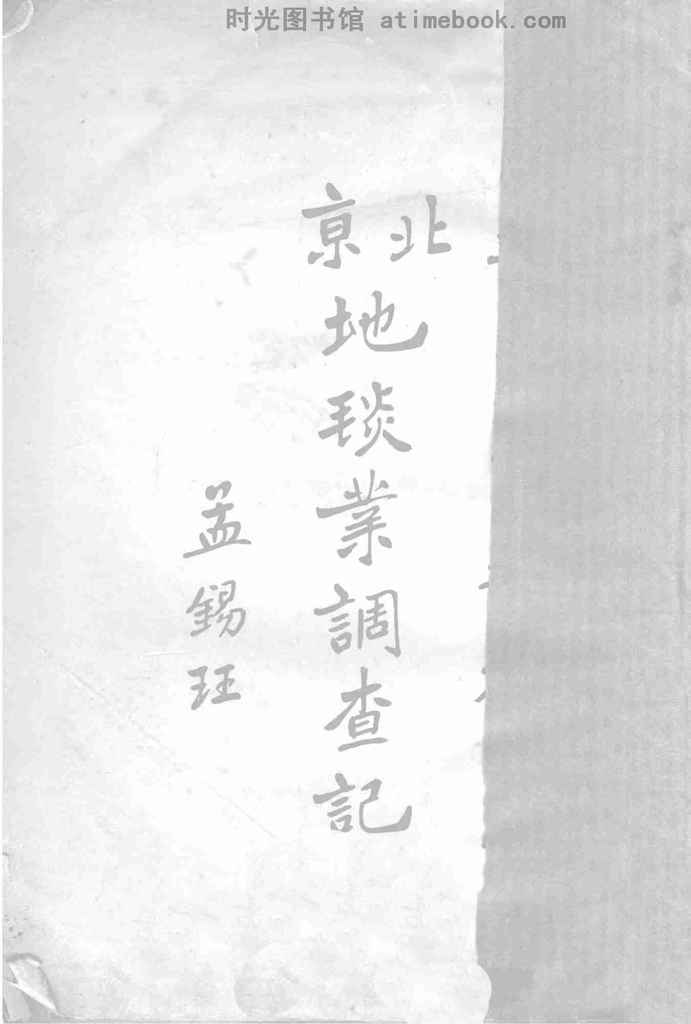 时光图书馆 atimebook.com
北京地毯業調查記
孟錫珏